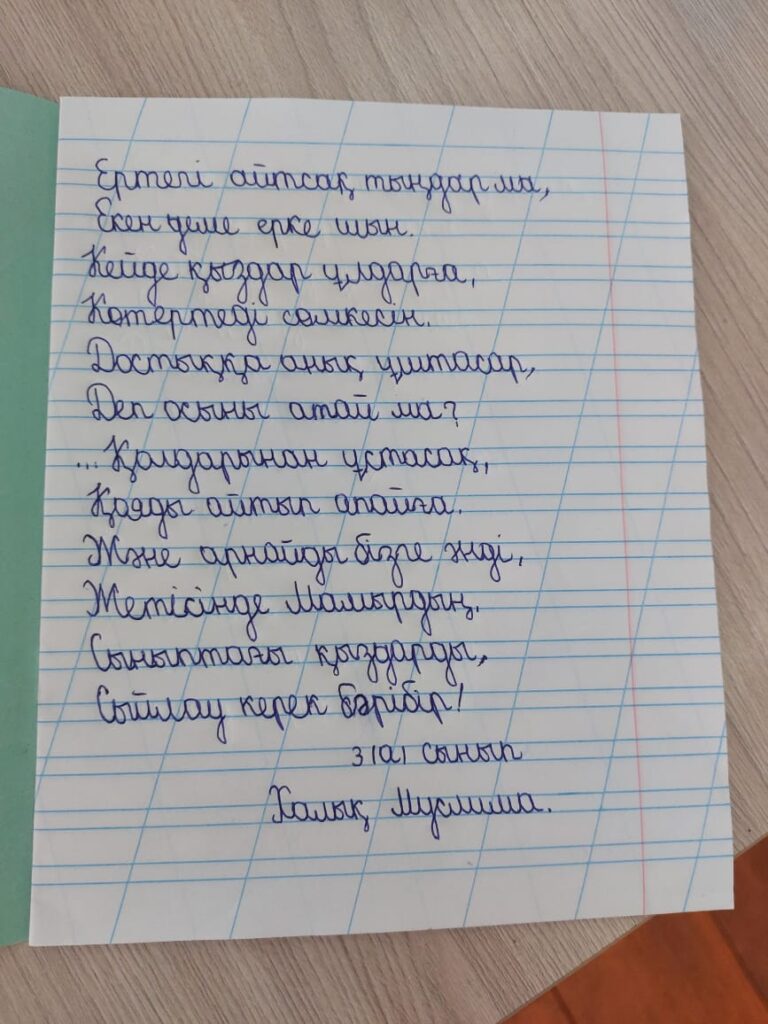 Ертегі айтсақ тыңдар ма,
Екен деме ерке шын.
Кейде қыздар ұлдарға,
Көтертеді сөмкесін.
Достыққа анық ұштасар,
Деп осыны атай ма?
...Қолдарынан ұстасақ,
Қояды айтып апайға.
Және арнайды бізге әнді,
Жетісінде Мамырдың.
Сыныптағы қыздарды,
Сыйлау керек бәрібір!
3 (а) сынып
Халық Муслима.